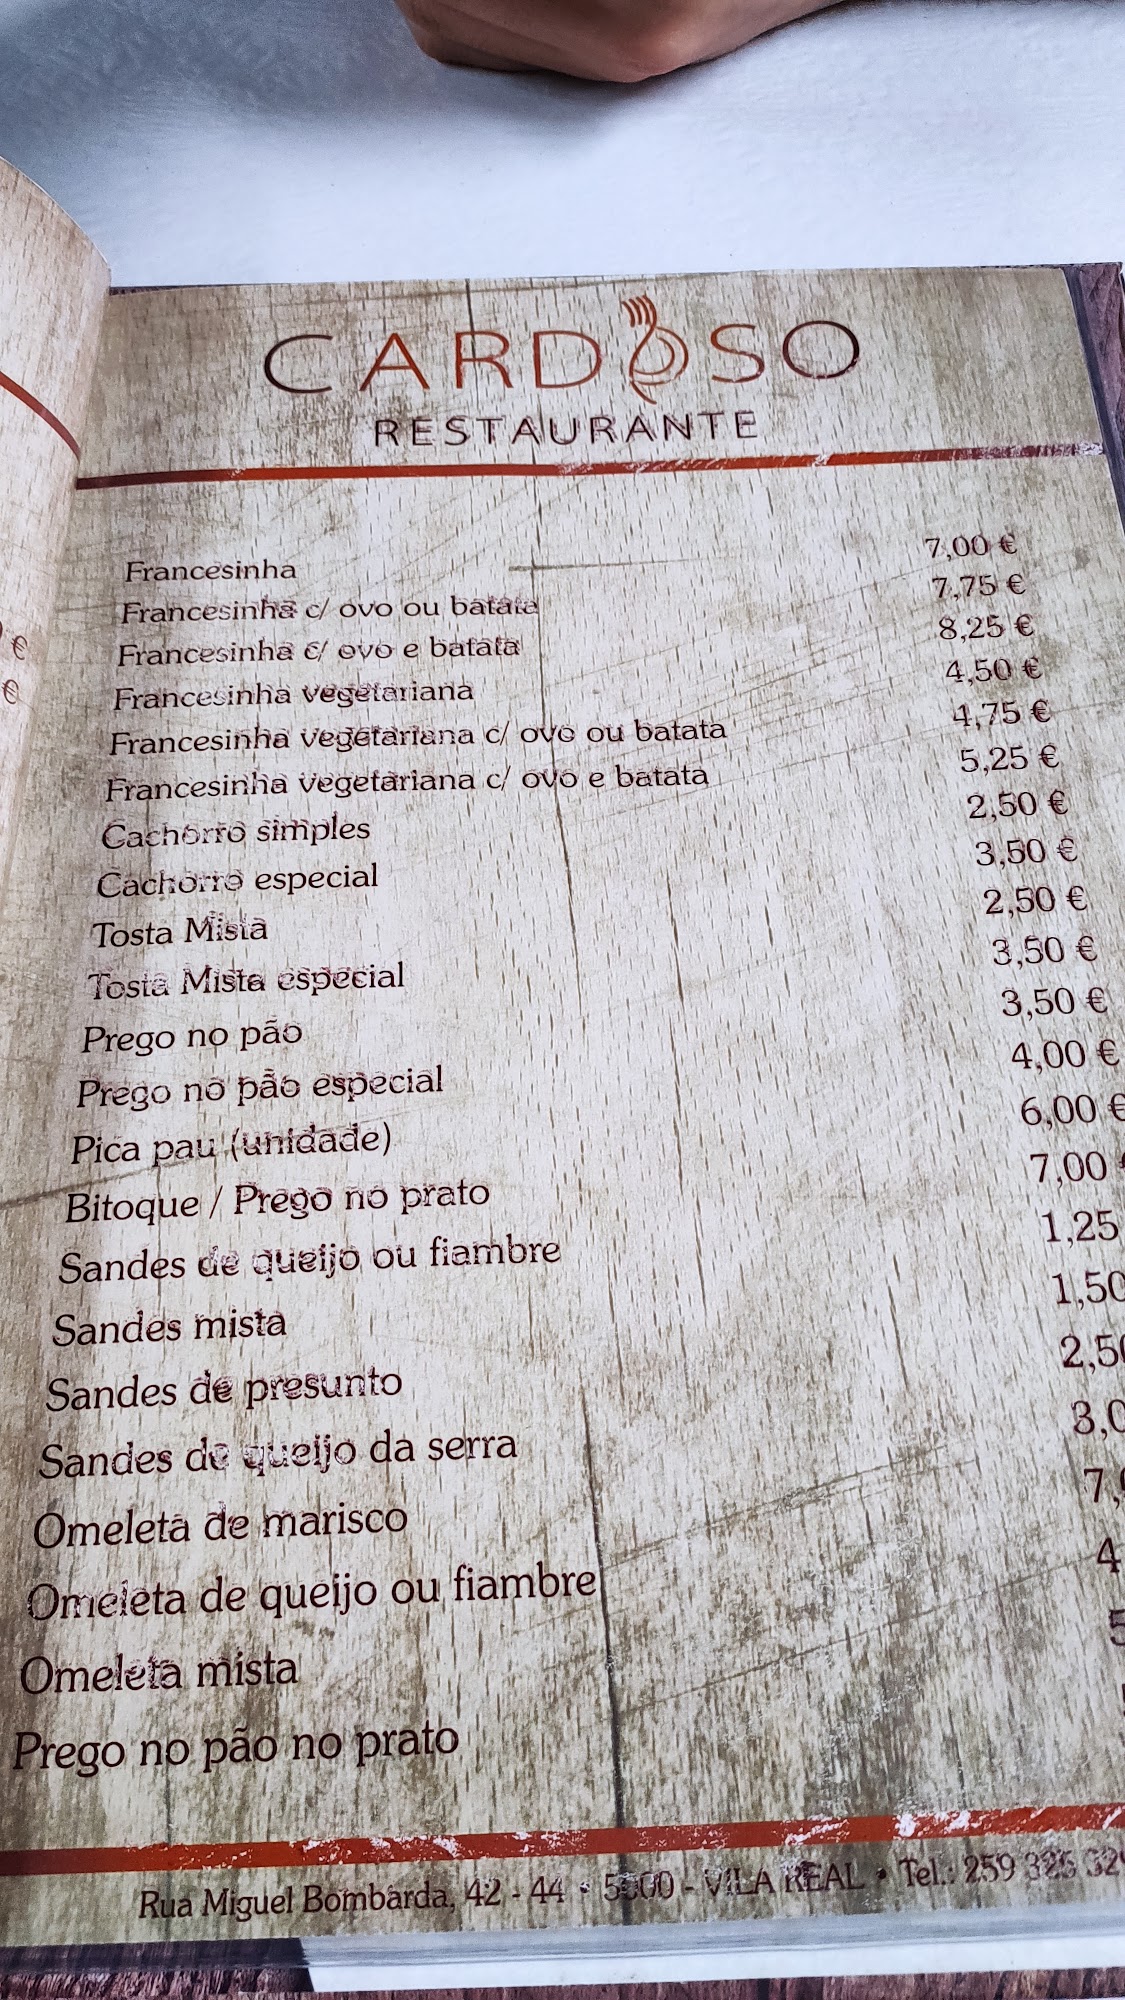 CARDOSO
RESTAURANTE
Francesinha 7,00 €
Francesinha c/ ovo ou batata 7,75 €
Francesinha c/ ovo e batata 8,25 €
Francesinha vegetariana 4,50 €
Francesinha vegetariana c/ ovo ou batata 4,75 €
Francesinha vegetariana c/ ovo e batata 5,25 €
Cachorro simples 2,50 €
Cachorro especial 3,50 €
Tosta Mista 2,50 €
Tosta Mista especial 3,50 €
Prego no pão 3,50 €
Prego no pão especial 4,00 €
Pica pau (unidade) 6,00 €
Bitoque / Prego no prato 7,00 €
Sandes de queijo ou fiambre 1,25
Sandes mista 1,50
Sandes de presunto 2,50
Sandes de queijo da serra 3,0
Omeleta de marisco 7,
Omeleta de queijo ou fiambre 4
Omeleta mista 5
Prego no pão no prato
Rua Miguel Bombarda, 42 - 44 • 5000 - VILA REAL • Tel.: 259 325 329